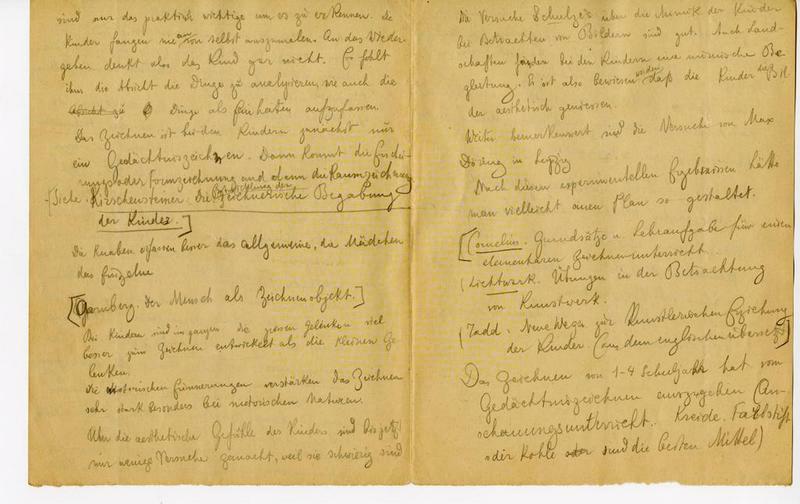 sind nur das praktisch wichtige um es zu erkennen. Die
Kinder fangen nie an von selbst auszumalen. An das Wieder-
geben denkt also das Kind gar nicht. Es fehlt
ihm die Absicht die Dinge zu analysieren, wie auch die
Absicht zu Dinge als Einheiten aufzufassen.
Das Zeichnen ist bei den Kindern zunächst nur
ein Gedächtniszeichnen. Dann kommt die Erschei-
nungs oder Formzeichnung und dann die Raumzeichnung
(Siehe Kerschensteiner: Die Entwicklung der zeichnerische Begabung
der Kinder.]
Die Knaben erfassen besser das allgemeine, die Mädchen
das Einzelne
[ Der Mensch als Zeichenobjekt.]
Bei Kindern sind im ganzen die grossen Gelenken viel
besser zum Zeichnen entwickelt als die kleinen Ge-
lenken.
Die motorischen Erinnerungen verstärken das Zeichnen
sehr stark besonders bei motorischen Naturen.
Über die aesthetische Gefühle des Kindes sind bis jetzt
nur wenige Versuche gemacht, weil sie schwierig sind
Die Versuche Schulzes über die Mimik der Kinder
bei Betrachten von Bildern sind gut. Auch Land-
schaften fanden bei den Kindern eine mimische Be-
gleitung. Es ist also bewiesen worden daß die Kinder die Bil-
der aesthetisch geniessen.
Weiter bemerkenswert sind die Versuche von Max
Döring in Leipzig
Nach diesen experimentellen Ergebnissen hätte
man vielleicht einen Plan so gestaltet.
[Cornelius. Grundsätze u. Lehraufgabe für einen
elementaren Zeichenunterricht.
(Lichtwark. Übungen in der Betrachtung
von Kunstwerk.
(Tadd. Neue Wege zur Künstlerischen Erziehung
der Kinder (aus dem englischen übersetz)]
Das Zeichnen von 1-4 Schuljahr hat vom
Gedächtniszeichnen auszugehen (An-
schauungsunterricht. Kreide. Farbstift
oder Kohle sind die besten Mittel)